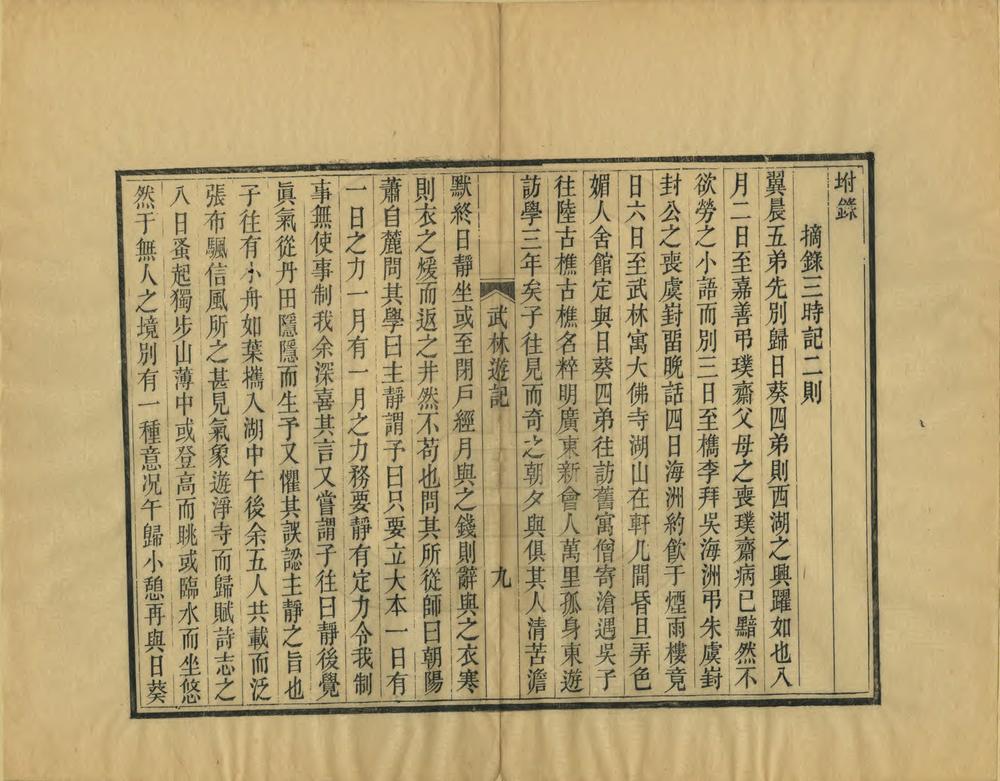 坿錄
摘錄三時記二則
翼晨五弟先別歸日葵四弟則西湖之興躍如也入
月二日至嘉善弔璞齋父母之喪璞齋病已黯然不
欲勞之小語而別三日至檇李拜吳海洲弔朱虞崶
封公之喪虞崶畱晚話四日海洲約飲于煙雨樓竟
日六日至武林寓大佛寺湖山在軒几間昏旦弄色
媚人舍館定與日葵四弟往訪舊寓僧寄滄遇吳子
往陸古樵古樵名粹明廣東新會人萬里孤身東遊
訪學三年矣子往見而奇之朝夕與俱其人清苦澹
武林遊記
九
默終日靜坐或至閉戶經月與之錢則辭與之衣寒
則衣之煖而返之井然不苟也問其所從師曰朝陽
蕭自麓問其學曰主靜謂予曰只要立大本一日有
一日之力一月有一月之力務要靜有定力令我制
事無使事制我余深喜其言又嘗謂子往曰靜後覺
眞氣從丹田隱隱而生予又懼其誤認主靜之旨也
子往有小舟如葉攜入湖中午後余五人共載而泛
張布颿信風所之甚見氣象遊淨寺而歸賦詩志之
八日蚤起獨步山薄中或登高而眺或臨水而坐悠
然于無人之境別有一種意况午歸小憩再與日葵